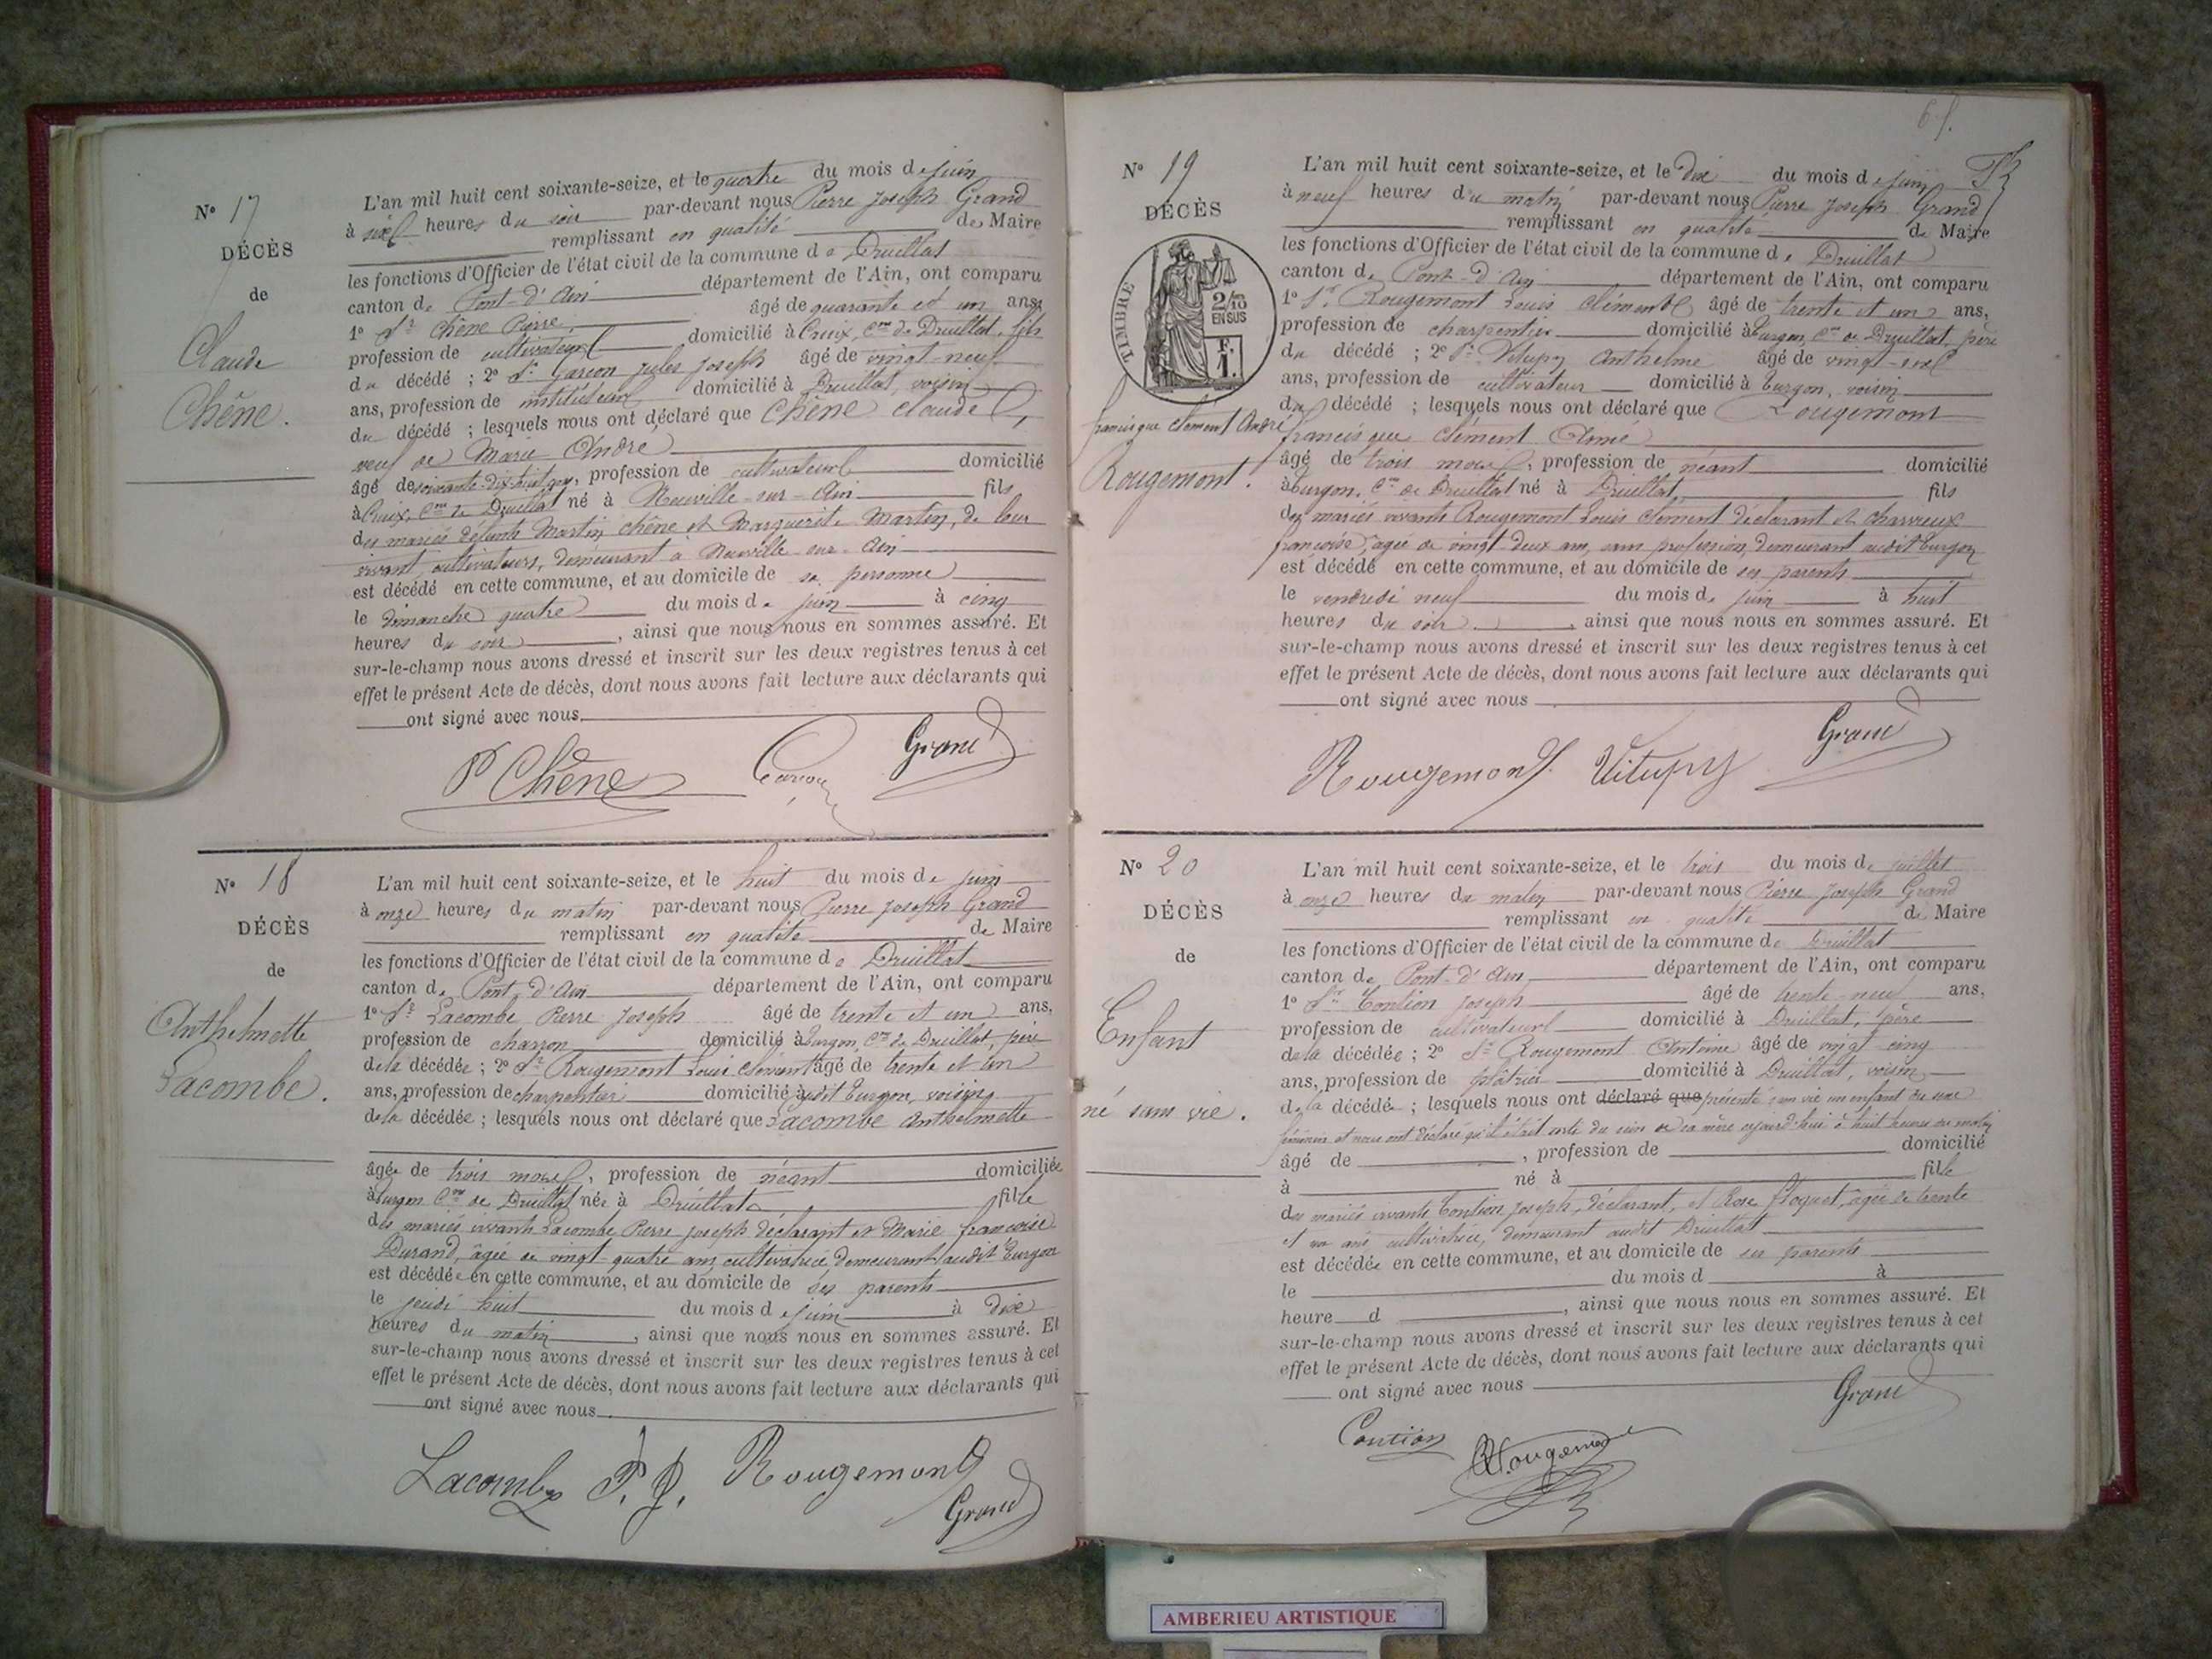 N° 17
DÉCÈS
de
Claude
Chêne.
L'an mil huit cent soixante-seize, et le quatre du mois de juin
à six heures du soir par-devant nous Pierre Joseph Grand
remplissant en qualité de Maire
les fonctions d'Officier de l'état civil de la commune de Druillat
canton de Pont-d'Ain département de l'Ain, ont comparu
1° Sr Chêne Pierre, âgé de quarante et un ans,
profession de cultivateur domicilié à Cruix, Cne de Druillat, fils
du décédé ; 2° Sr Garcon Jules Joseph âgé de vingt-neuf
ans, profession de instituteur domicilié à Druillat, voisin
du décédé ; lesquels nous ont déclaré que Chêne Claude,
veuf de Marie Andre
âgé de soixante-dix-huit ans, profession de cultivateur domicilié
à Cruix, Cne de Druillat né à Neuville-sur-Ain fils
des mariés défunts Martin Chêne et Marguerite Martin, de leur
vivant cultivateurs, demeurant à Neuville-sur-Ain
est décédé en cette commune, et au domicile de sa personne
le dimanche quatre du mois de juin à cinq
heures du soir, ainsi que nous nous en sommes assuré. Et
sur-le-champ nous avons dressé et inscrit sur les deux registres tenus à cet
effet le présent Acte de décès, dont nous avons fait lecture aux déclarants qui
ont signé avec nous.
P Chêne Garcon Grand
N° 18
DÉCÈS
de
Anthelmette
Lacombe.
L'an mil huit cent soixante-seize, et le huit du mois de juin
à onze heures du matin par-devant nous Pierre Joseph Grand
remplissant en qualité de Maire
les fonctions d'Officier de l'état civil de la commune de Druillat
canton de Pont-d'Ain département de l'Ain, ont comparu
1° Sr Lacombe Pierre Joseph âgé de trente et un ans,
profession de charron domicilié à Turgon, Cne de Druillat, père
de la décédée ; 2° Sr Rougemont Louis Clément âgé de trente et un
ans, profession de charpentier domicilié audit Turgon, voisin
de la décédée ; lesquels nous ont déclaré que Lacombe Anthelmette
âgée de trois mois, profession de néant domiciliée
à Turgon Cne de Druillat née à Druillat fille
des mariés vivants Lacombe Pierre Joseph déclarant et Marie françoise
Durand, âgée de vingt-quatre ans, cultivatrice demeurant audit Turgon
est décédée en cette commune, et au domicile de ses parents
le jeudi huit du mois de juin à dix
heures du matin, ainsi que nous nous en sommes assuré. Et
sur-le-champ nous avons dressé et inscrit sur les deux registres tenus à cet
effet le présent Acte de décès, dont nous avons fait lecture aux déclarants qui
ont signé avec nous.
Lacombe P. J. Rougemont Grand
N° 19
DÉCÈS
TIMBRE
2/10
EN SUS
F.
1.
francisque Clément André
Rougemont.
L'an mil huit cent soixante-seize, et le dix du mois de juin
à neuf heures du matin par-devant nous Pierre Joseph Grand
remplissant en qualité de Maire
les fonctions d'Officier de l'état civil de la commune de Druillat
canton de Pont-d'Ain département de l'Ain, ont comparu
1° Sr Rougemont Louis Clément âgé de trente et un ans,
profession de charpentier domicilié à Turgon, Cne de Druillat, père
du décédé ; 2° Sr Vitupy Anthelme âgé de vingt-six
ans, profession de cultivateur domicilié à Turgon, voisin
du décédé ; lesquels nous ont déclaré que Rougemont
francisque Clément Aimé
âgé de trois mois, profession de néant domicilié
à Turgon, Cne de Druillat né à Druillat, fils
des mariés vivants Rougemont Louis Clément déclarant et Charvieux
françoise, âgée de vingt-deux ans, sans profession, demeurant audit Turgon
est décédé en cette commune, et au domicile de ses parents
le vendredi neuf du mois de juin à huit
heures du soir, ainsi que nous nous en sommes assuré. Et
sur-le-champ nous avons dressé et inscrit sur les deux registres tenus à cet
effet le présent Acte de décès, dont nous avons fait lecture aux déclarants qui
ont signé avec nous
Rougemont Vitupy Grand
N° 20
DÉCÈS
de
Enfant
né sans vie.
L'an mil huit cent soixante-seize, et le trois du mois de juillet
à onze heures du matin par-devant nous Pierre Joseph Grand
remplissant en qualité de Maire
les fonctions d'Officier de l'état civil de la commune de Druillat
canton de Pont-d'Ain département de l'Ain, ont comparu
1° Sr Contion Joseph âgé de trente-neuf ans,
profession de cultivateur domicilié à Druillat, père
de la décédée ; 2° Sr Rougemont Antoine âgé de vingt cinq
ans, profession de plâtrier domicilié à Druillat, voisin
de la décédée ; lesquels nous ont déclaré que présenté sans vie un enfant du sexe
féminin et nous ont déclaré qu'il était sorti du sein de sa mère aujourd'hui à huit heures du matin
âgé de , profession de domicilié
à né à fille
des mariés vivants Contion Joseph, déclarant, et Rose floquet, âgée de trente
et un ans, cultivatrice, demeurant audit Druillat
est décédée en cette commune, et au domicile de ses parents
le du mois d à
heure d , ainsi que nous nous en sommes assuré. Et
sur-le-champ nous avons dressé et inscrit sur les deux registres tenus à cet
effet le présent Acte de décès, dont nous avons fait lecture aux déclarants qui
ont signé avec nous
Contion A Rougemont Grand
AMBERIEU ARTISTIQUE